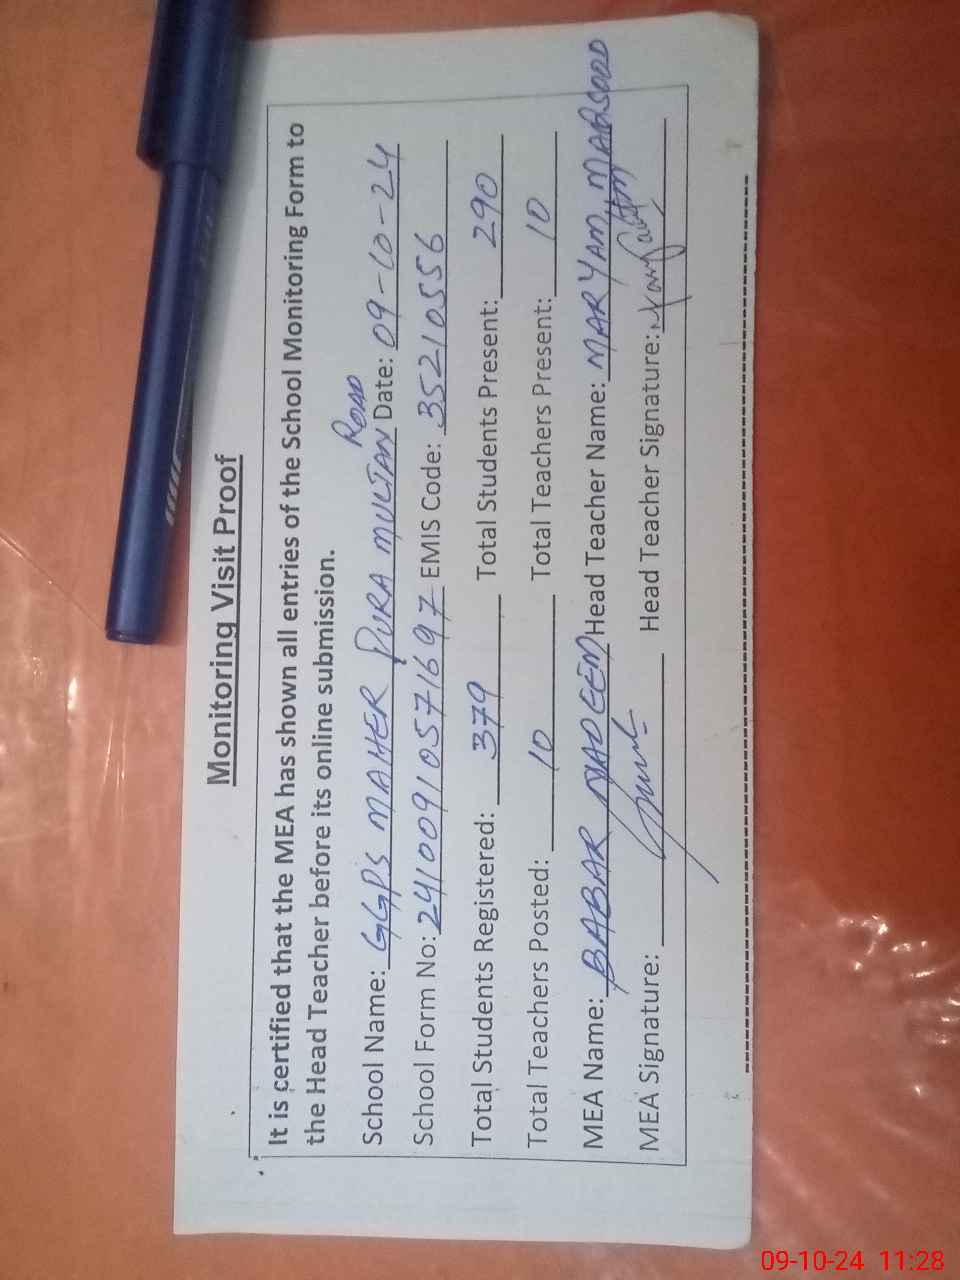 Monitoring Visit Proof
It is certified that the MEA has shown all entries of the School Monitoring Form to
the Head Teacher before its online submission.
School Name: GGPS MAHER PURA MULTAN ROAD Date: 09-10-24
School Form No: 241009105716 97 EMIS Code: 35210556
Total Students Registered: 379 Total Students Present: 290
Total Teachers Posted: 10 Total Teachers Present: 10
MEA Name: BABAR NADEEM Head Teacher Name: MARYAM MAQSOOD
MEA Signature: Head Teacher Signature:
09-10-24 11:28